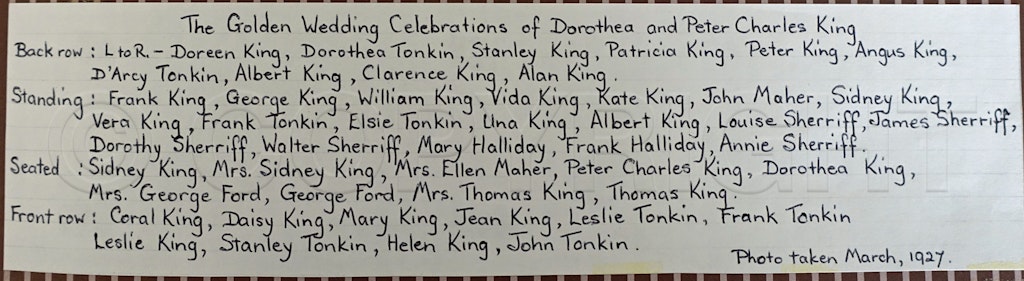 The Golden Wedding Celebrations of Dorothea and Peter Charles King
Back row : L to R. - Doreen King, Dorothea Tonkin, Stanley King, Patricia King, Peter King, Angus King,
D'Arcy Tonkin, Albert King, Clarence King, Alan King.
Standing : Frank King, George King, William King, Vida King, Kate King, John Maher, Sidney King,
Vera King, Frank Tonkin, Elsie Tonkin, Una King, Albert King, Louise Sherriff, James Sherriff,
Dorothy Sherriff, Walter Sherriff, Mary Halliday, Frank Halliday, Annie Sherriff.
Seated : Sidney King, Mrs. Sidney King, Mrs. Ellen Maher, Peter Charles King, Dorothea King,
Mrs. George Ford, George Ford, Mrs. Thomas King, Thomas King.
Front row : Coral King, Daisy King, Mary King, Jean King, Leslie Tonkin, Frank Tonkin
Leslie King, Stanley Tonkin, Helen King, John Tonkin.
Photo taken March, 1927.